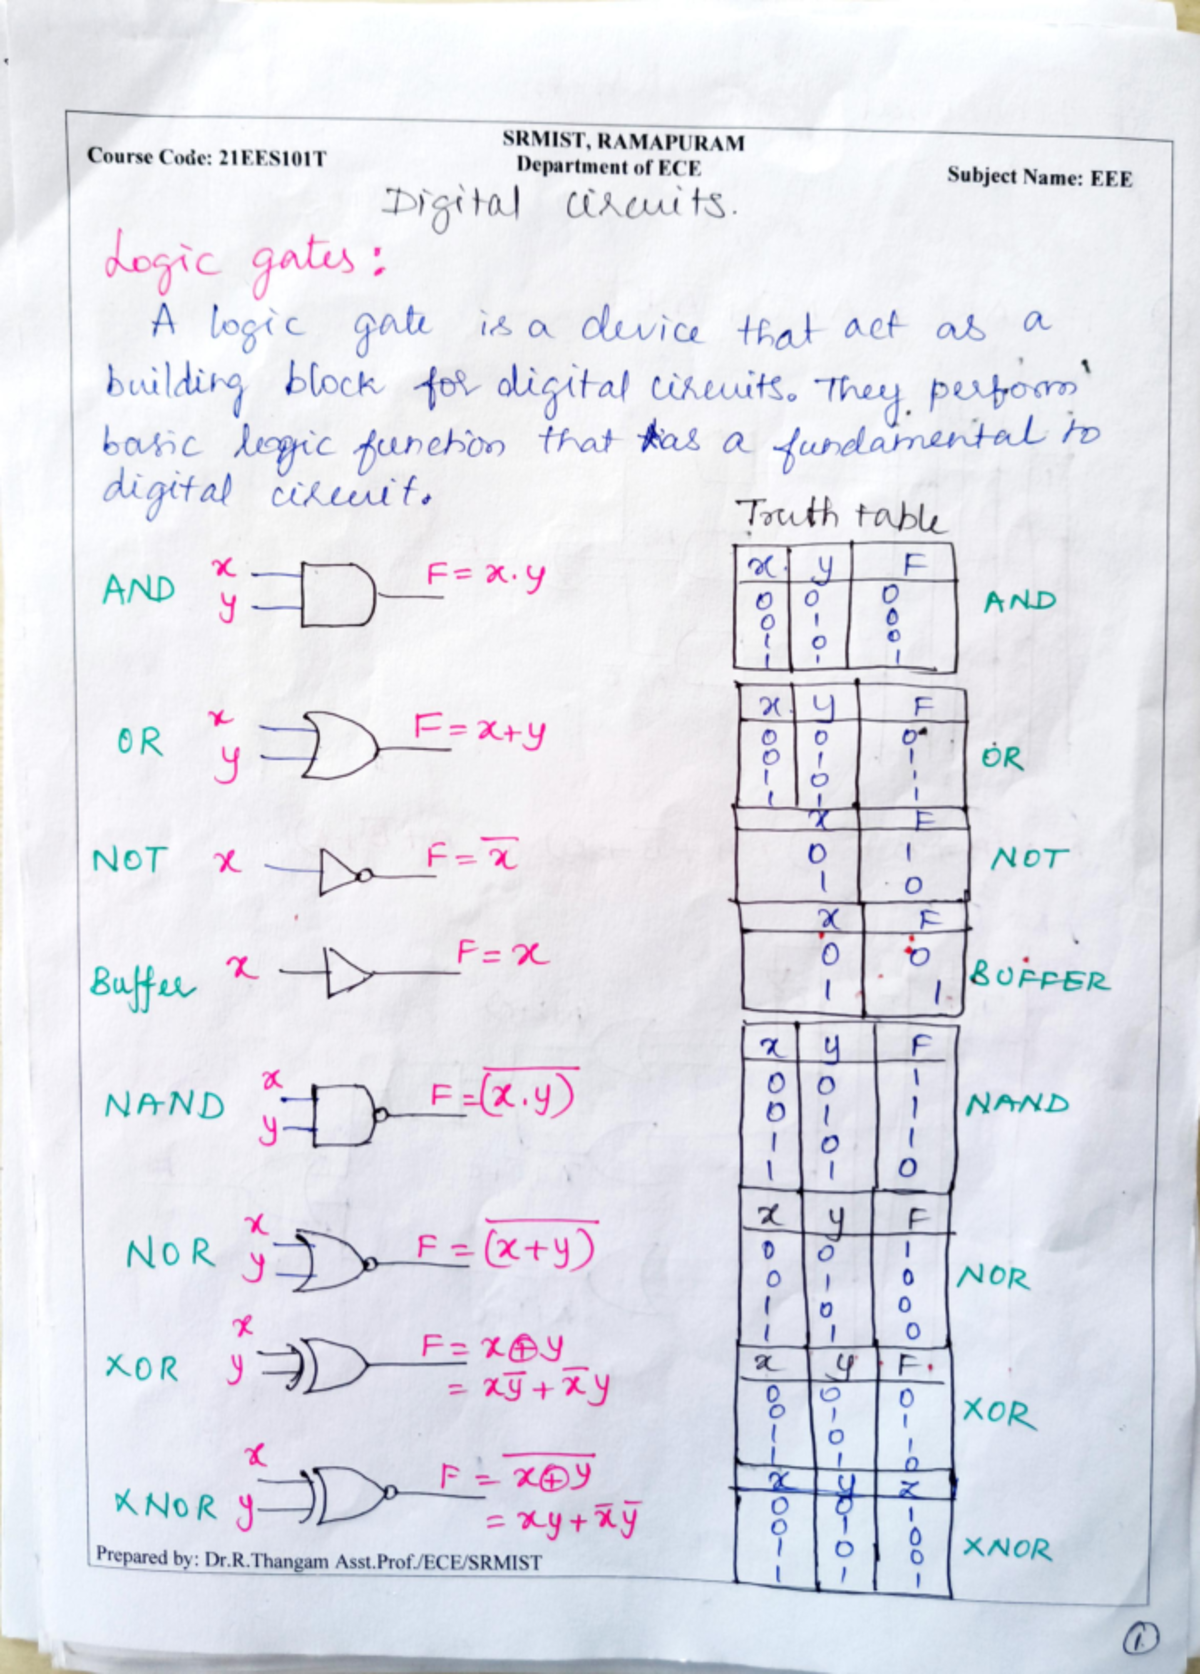 SRMIST, RAMAPURAM
Course Code: 21EES101T Department of ECE Subject Name: EEE
Digital circuits.
Logic gates:
A logic gate is a device that act as a
building block for digital circuits. They perform
basic logic function that has a fundamental to
digital circuit.
Truth table
AND x y F = x.y
x y F AND
0 0 0
0 1 0
1 0 0
1 1 1
OR x y F = x+y
x y F OR
0 0 0
0 1 1
1 0 1
1 1 1
NOT x F = x̅
x F NOT
0 1
1 0
Buffer x F = x
x F BUFFER
0 0
1 1
NAND x y F = (x.y)̅
x y F NAND
0 0 1
0 1 1
1 0 1
1 1 0
NOR x y F = (x+y)̅
x y F NOR
0 0 1
0 1 0
1 0 0
1 1 0
XOR x y F = x⊕y
= xy̅ + x̅y
x y F XOR
0 0 0
0 1 1
1 0 1
1 1 0
XNOR x y F = x̅⊕̅y̅
= xy + x̅y̅
x y Z XNOR
0 0 1
0 1 0
1 0 0
1 1 1
Prepared by: Dr.R.Thangam Asst.Prof./ECE/SRMIST
1.